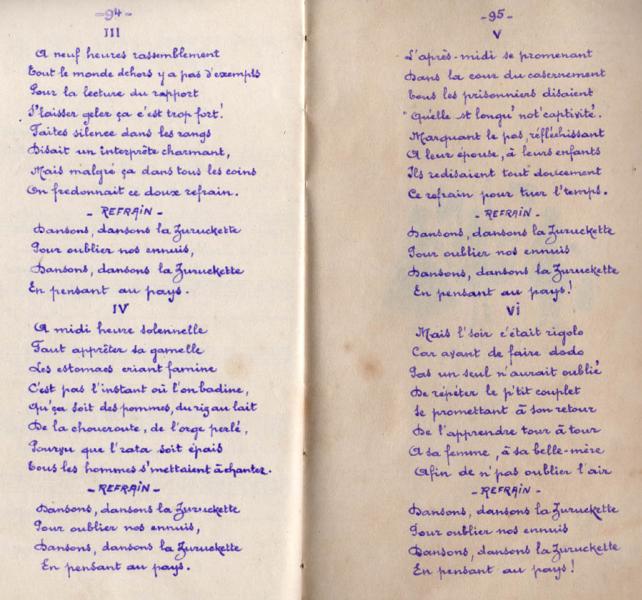 -94-
III
A neuf heures rassemblement
Tout le monde dehors y a pas d'exempts
Pour la lecture du rapport
S'laisser geler ça c'est trop fort!
Faites silence dans les rangs
Disait un interprète charmant,
Mais malgré ça dans tous les coins
On fredonnait ce doux refrain.
- REFRAIN -
Dansons, dansons la Zuruckette
Pour oublier nos ennuis,
Dansons, dansons la Zuruckette
En pensant au pays.
IV
A midi heure solennelle
Faut apprêter sa gamelle
Les estomacs criant famine
C'est pas l'instant où l'on badine,
Qu'ça soit des pommes, du riz au lait
De la choucroute, de l'orge perlé,
Pourvu que l'rata soit épais
Tous les hommes s'mettaient à chanter.
- REFRAIN -
Dansons, dansons la Zuruckette
Pour oublier nos ennuis,
Dansons, dansons la Zuruckette
En pensant au pays.
-95-
V
L'après-midi se promenant
Dans la cour du casernement
Tous les prisonniers disaient
Qu'elle st longu' not' captivité.
Marquant le pas, réfléchissant
A leur épouse, à leurs enfants
Ils redisaient tout doucement
Ce refrain pour tuer l'temps.
- REFRAIN -
Dansons, dansons la Zuruckette
Pour oublier nos ennuis
Dansons, dansons la Zuruckette
En pensant au pays!
VI
Mais l'soir c'était rigolo
Car avant de faire dodo
Pas un seul n'aurait oublié
De répéter le p'tit couplet
Se promettant à son retour
De l'apprendre tour à tour
A sa femme, à sa belle-mère
Afin de n'pas oublier l'air
- REFRAIN -
Dansons, dansons la Zuruckette
Pour oublier nos ennuis
Dansons, dansons la Zuruckette
En pensant au pays!